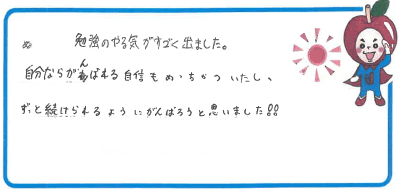 勉強のやる気がすごく出ました。
自分ならがんばれる自信もめっちゃついたし、
ずっと続けられるようにがんばろうと思いました!!